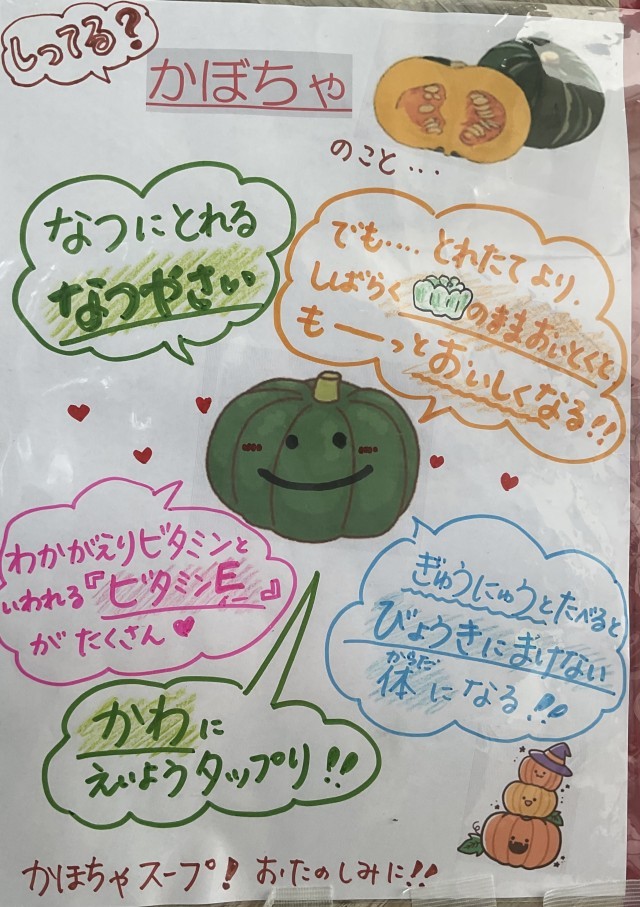 しってる?
かぼちゃ
のこと...
なつにとれる
なつやさい
でも.... とれたてより、
しばらく のままおいとくと
もーっとおいしくなる!!
わかがえりビタミンと
いわれる『ビタミンE イー』
がたくさん♥
ぎゅうにゅうとたべると
びょうきにまけない
からだ
体になる!!
かわに
えいようタップリ!!
かぼちゃスープ! おたのしみに!!